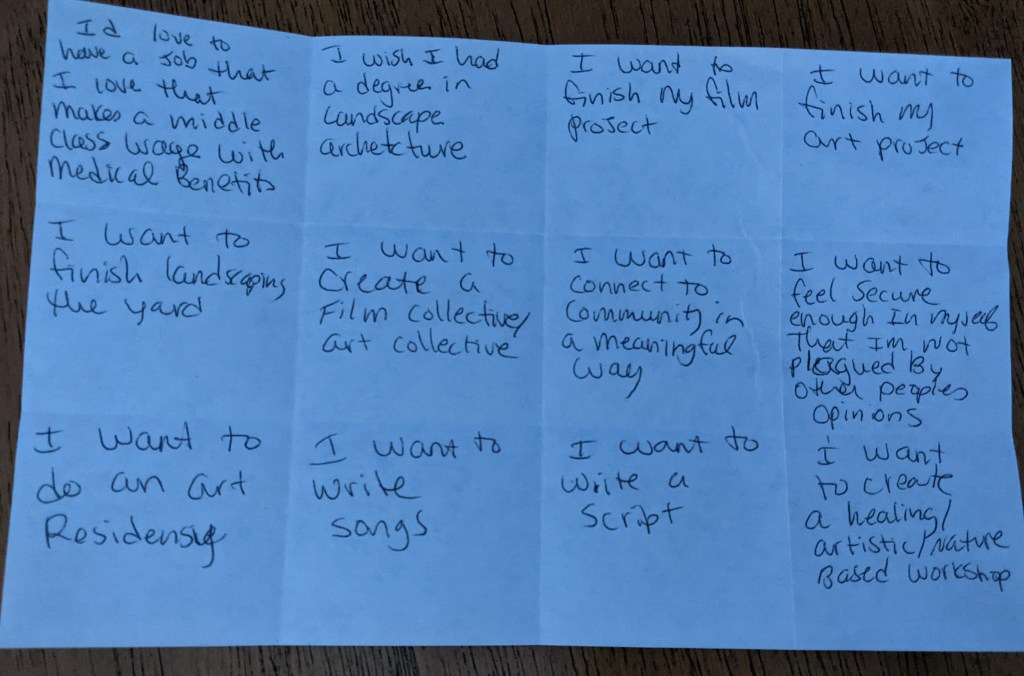 I'd love to
have a Job that
I love that
makes a middle
Class wage with
Medical Benefits
I wish I had
a degree in
Landscape
archetcture
I want to
finish my film
project
I want to
finish my
art project
I want to
finish landscaping
the yard
I want to
Create a
Film collective/
art collective
I want to
connect to
Community in
a meaningful
way
I want to
feel secure
enough In myself
That Im not
plagued By
other peoples
opinions
I want to
do an art
Residensy
I want to
write
songs
I want to
write a
Script
I want
to create
a healing/
artistic/Nature
Based workshop